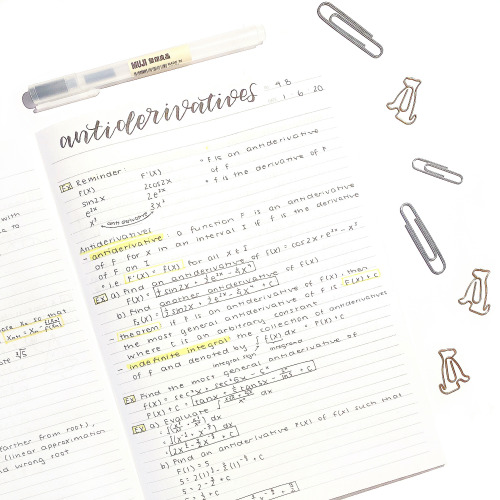 MUJI 無印良品
antiderivatives
4.8
1 6 20
Ex Reminder:
f(x) F'(x)
sin2x 2cos2x
e²ˣ 2e²ˣ
x³ 3x²
anti derivative
• F is an antiderivative
of f
• f is the derivative of F
Antiderivative:
- antiderivative: a function F is an antiderivative
of f for x in an interval I if f is the derivative
of F on I
• i.e. F'(x) = f(x) for all x ∈ I
Ex a) Find an antiderivative of f(x) = cos2x + e²ˣ - x³
F(x) = ½ sin2x + ½e²ˣ - ¼x⁴
b) Find another antiderivative of f(x)
- theorem: if F is an antiderivative of f(x), then
the most general antiderivative of f is F(x) + C
where C is an arbitrary constant
- indefinite integral: the collection of antiderivatives
of f and denoted by ∫ f(x) dx = F(x) + C
integral sign integrand
Ex Find the most general antiderivative of
Ex a) Evaluate
b) Find an antiderivative F(x) of f(x) such that
F(1) = 5
with
e to
so that
ote ³√5
farther from root),
(linear approximation
nd wrong root